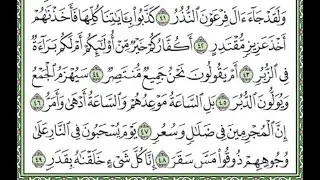 وَلَقَدْ جَاءَ ءَالَ فِرْعَوْنَ النُّذُرُ ٤١ كَذَّبُوا بِـَٔايَـٰتِنَا كُلِّهَا فَأَخَذْنَـٰهُمْ
أَخْذَ عَزِيزٍ مُّقْتَدِرٍ ٤٢ أَكُفَّارُكُمْ خَيْرٌ مِّنْ أُو۟لَـٰٓئِكُمْ أَمْ لَكُم بَرَآءَةٌ
فِى الزُّبُرِ ٤٣ أَمْ يَقُولُونَ نَحْنُ جَمِيعٌ مُّنتَصِرٌ ٤٤ سَيُهْزَمُ الْجَمْعُ
وَيُوَلُّونَ الدُّبُرَ ٤٥ بَلِ السَّاعَةُ مَوْعِدُهُمْ وَالسَّاعَةُ أَدْهَىٰ وَأَمَرُّ ٤٦
إِنَّ الْمُجْرِمِينَ فِى ضَلَـٰلٍ وَسُعُرٍ ٤٧ يَوْمَ يُسْحَبُونَ فِى النَّارِ عَلَىٰ
وُجُوهِهِمْ ذُوقُوا مَسَّ سَقَرَ ٤٨ إِنَّا كُلَّ شَىْءٍ خَلَقْنَـٰهُ بِقَدَرٍ ٤٩